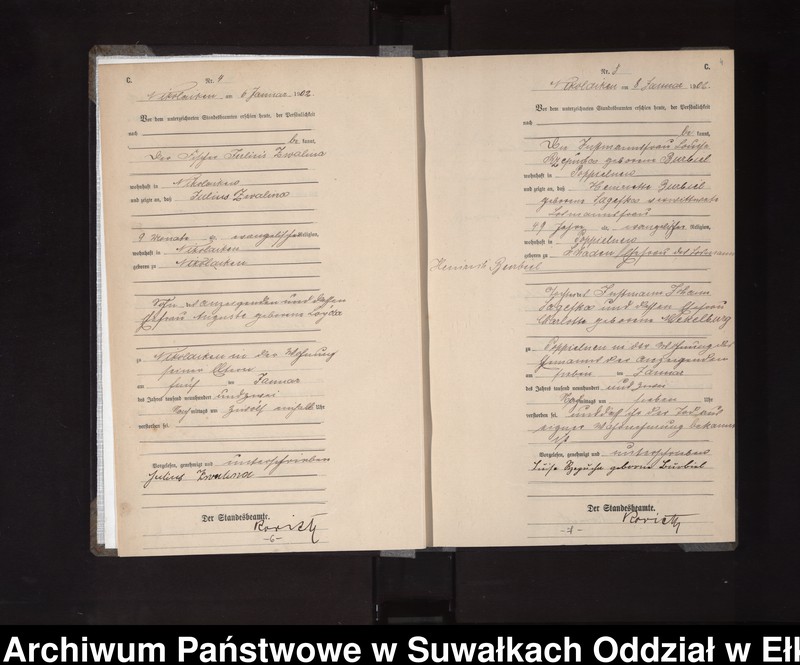 C.
Nr. 4
Nikolaiken am 6 Januar 1902
Vor dem unterzeichneten Standesbeamten erschien heute, der Persönlichkeit
nach
be kannt,
Der Fischer Julius Zwalina
wohnhaft in Nikolaiken
und zeigte an, daß Julius Zwalina
9 Monate a. evangelischer Religion,
wohnhaft in Nikolaiken
geboren zu Nikolaiken
Sohn des Anzeigenden und dessen
Ehefrau Auguste geborene
zu Nikolaiken in der Wohnung
seiner Eltern
am fünf ten Januar
des Jahres tausend neunhundert und zwei
Nachmittags um Uhr
verstorben sei.
Vorgelesen, genehmigt und unterschrieben
Julius Zwalina
Der Standesbeamte.
-6-
C.
Nr. 8
Nikolaiken am 8 Januar 1902
Vor dem unterzeichneten Standesbeamten erschien heute, der Persönlichkeit
nach
be kannt,
Die Instmannsfrau Louise
geborene Burbiel
wohnhaft in Poppielnen
und zeigte an, daß Henriette Burbiel
geborene verwittwete
49 Jahre a. evangelischer Religion,
wohnhaft in Poppielnen
geboren zu Ehefrau des Losmann
Heinrich Burbiel
Tochter des Instmann
und dessen Ehefrau
Charlotte geborene
zu Poppielnen in der Wohnung des
Ehemanns der Anzeigenden
am sieben ten Januar
des Jahres tausend neunhundert und zwei
Nachmittags um sieben Uhr
verstorben sei. und daß ihr der Tod aus
eigener Wahrnehmung bekannt
ist
Vorgelesen, genehmigt und unterschrieben
Luise geborne Burbiel
Der Standesbeamte.
Archiwum Państwowe w Suwałkach Oddział w Ełk